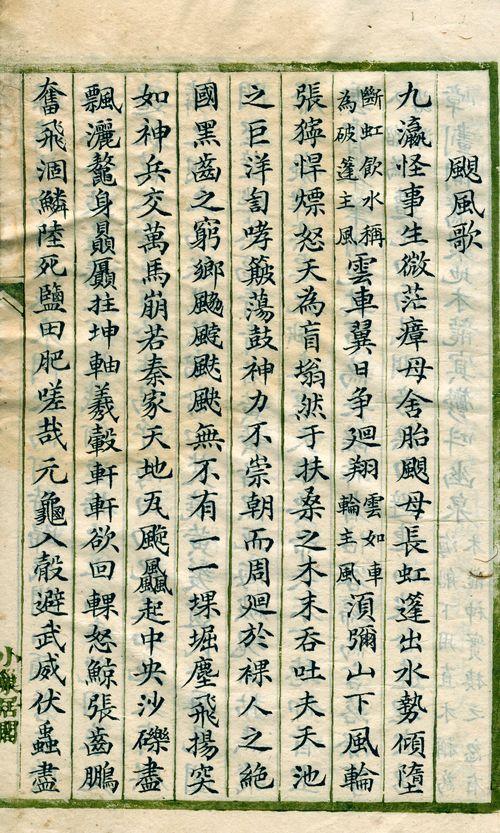 颶風歌
九瀛怪事生微茫瘴母含胎颶母長虹篷出水勢傾墮
斷虹飲水稱為破篷主風雲車翼日争廻翔雲如車輪主風湏彌山下風輪
張獰悍熛怒天為盲塕然于扶桑之木末吞吐夫天池
之巨洋訇哮簸蕩鼓神力不崇朝而周廻於裸人之絶
國黑齒之窮鄉颺無不有一一堁堀塵飛揚突
如神兵交萬馬崩若秦家天地瓦起中央沙礫盡
飄灑鼇身贔屭拄坤軸羲轂軒軒欲回輠怒鯨張齒鵬
奮飛涸鱗陸死鹽田肥嗟哉元龜入殼避武威伏蟲盡